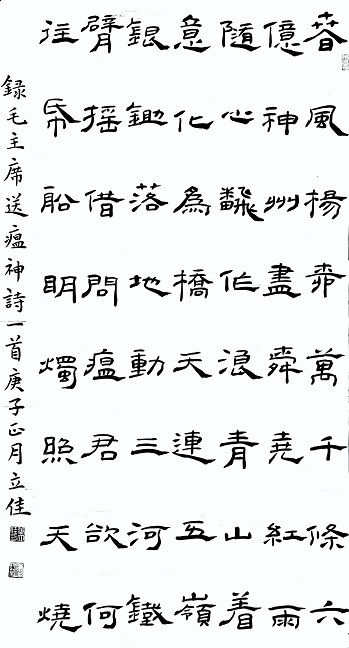 春風楊桺萬千條六
億神州盡舜堯紅雨
隨心飜作浪青山着
意化為橋天連五嶺
銀鋤落地動三河鐵
臂摇借問瘟君欲何
往帋舩明燭照天燒
録毛主席送瘟神詩一首庚子正月立佳